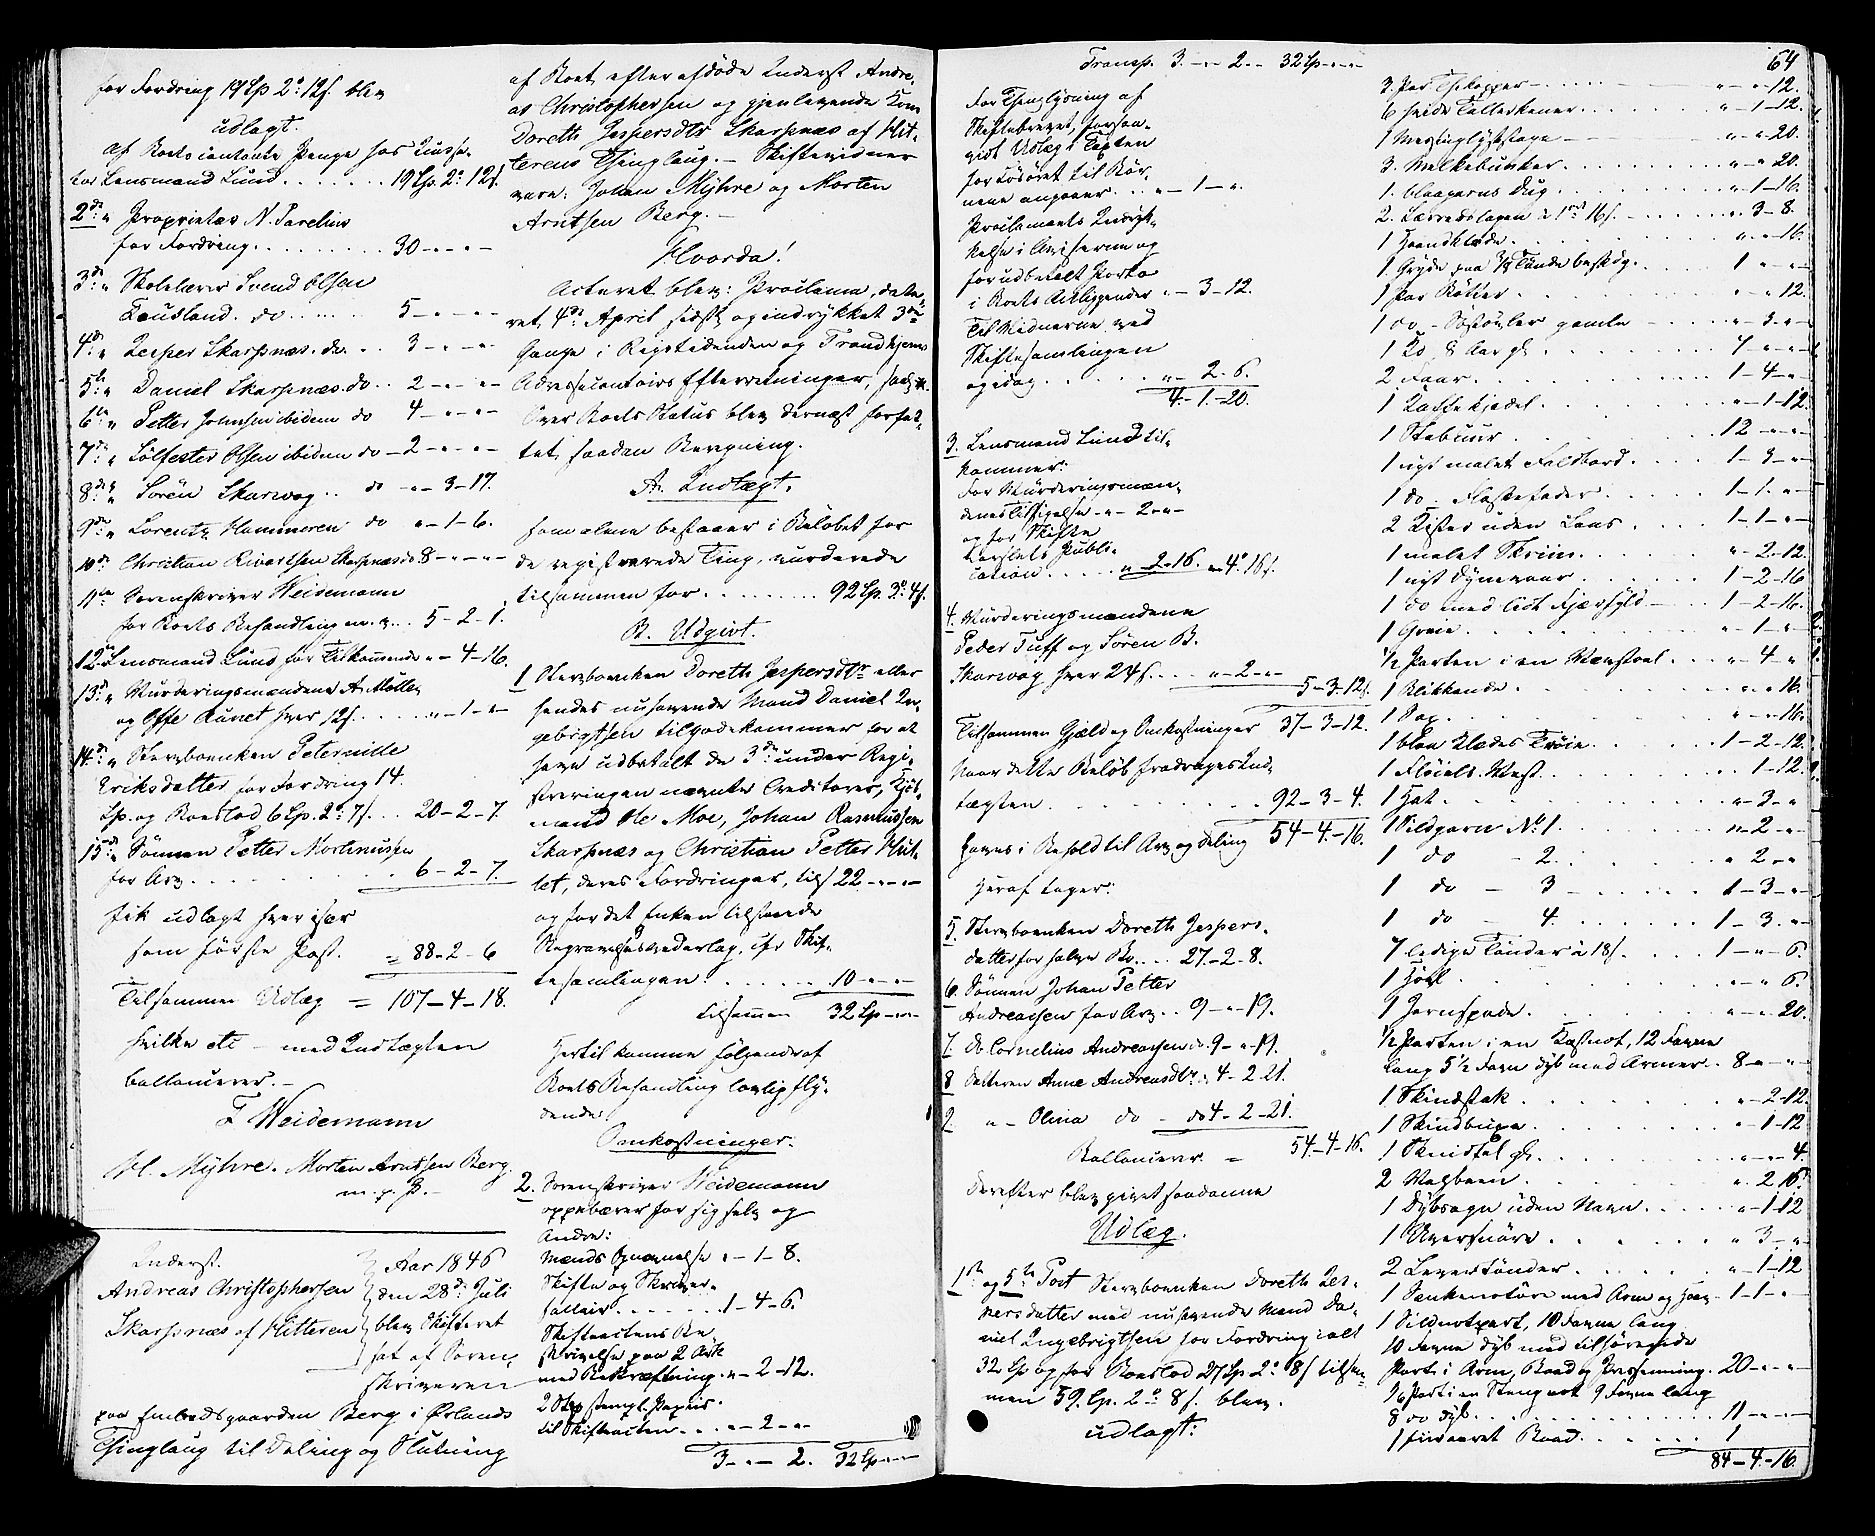 for Fordring 19 Sp 2 o: 12 f. blev
udlagt.
af Boets contante Penge hos Lensmand Lund . . . . . . 19 Sp. 2 o: 12 f.
2 de: " Proprietær N. Parelius
for Fordring . . . . . . . . 30 - " - "
3 de: " Skolelærer Svend Olsen
Lausland. do . . . . . 5 - " - "
4 de: " Jesper Skarpnæs. do. . . 3 - " - "
5 te " Daniel Skarpnæs. do . . 2 - " - "
6 te " Petter Johnsen ibidem do 4 - " - "
7 de: " Sølfester Olsen ibidem do - 2 - " - "
8 de: " Sören Skarvog . . do " - 3 - 17.
9 de: " Lorentz Hammeren do " - 1 - 6.
10 de: Christian Rivertsen Skarpnæs do 8 - " - "
11 te " Sorenskriver Weidemann
for Boets Behandling m. v. . . 5 - 2 - 1.
12 te Lensmand Lund for Tilkommende " - 4 - 16.
13 de " Vurderingsmændene A. Møller
og Offe Rånet hver 12 f. . . . . " - 1 - "
14 de: " Stervboenken Peternille
Eriksdatter for Fordring 14.
Sp. og Boeslod 6 Sp. 2 o: 7 f. . . . 20 - 2 - 7.
15 de " Sönnen Petter Mortinussen
for Arv . . . . . . . . . . 6 - 2 - 7.
fik udlagt hver især
som förste Post. = 88 - 2 - 6
Tilsammen Udlæg = 107 - 4 - 18.
hvilke etc - med Indtægten
ballancerer. -
F Weidemann
H. Myhre. Morten Arntsen Berg.
m. p. P. -
Inderst.
Andreas Christophersen
Skarpnæs af Hitteren
Aar 1846
den 28 de: Juli
blev Skifteret
sat af Soren-
skriveren
paa Embedsgaarden Berg i Ørlands
Thinglaug til Deling og Slutning
af Boet efter afdöde Inderst Andre-
as Christophersen og gjenlevende Kone
Doreth Jespersdtr Skarpnæs af Hit-
terens Thinglaug. - Skiftevidner
vare: Johan Myhre og Morten
Arntsen Berg. -
Hvorda!
Acteret blev: Proclama, date-
ret 4 de: April sidst og indrykket 3 de
Gange i Rigstidenden og Trondhjems
Adressecontoirs Efterretninger,
Over Boets Status blev dernæst forfat-
tet saadan Beregning.
A. Indtægt.
som alene bestaaer i Belöbet for
de registrerede Ting, vurderede
tilsammen for . . . . . . . 92 Sp. 3 o: 4 f.
B. Udgivt.
1 Stervboenken Doreth Jespersdtr eller
hendes nuhavende Mand Daniel In-
gebrigtsen tilgodekommer for at
have udbetalt de 3 de under Regi-
streringen nævnte Creditorer, Kjöb-
mand Ole Moe, Johan Rasmussen
Skarpnæs og Christian Petter Hit-
let, deres Fordringer, tils 22 - " - "
og for det Enken tilstaaede
Begravelsesvederlag, cfr Skif-
tesamlingen . . . . . . 10 - " - "
tilsammen 32 Sp - " - "
Hertil komme fölgende af
Boets Behandling lovlig fly-
dende
Omkostninger.
2. Sorenskriver Weidemann
oppebærer for sig selv og
Andre:
Mænds Opnævnelse " - 1 - 8.
Skifte og Skriver-
sallair . . . . . . . . 1 - 4 - 6.
Skifteactens Be-
skrivelse paa 2 Ark
med Bekræftning . " - 2 - 12.
2 Stpr stempl. Papiir
til Skifteacten . . . " - 2 - "
3 - " - 2. 32 Sp - " - "
Transp. 3. - " - 2 - " 32 Sp - " - "
For Thinglysning af
Skiftebrevet, forsaa-
vidt Udlægs Texten
for Lösöret til Bör-
nene angaaer . . . " - 1 - "
Proclamaets Indryk-
kelse i Aviserne og
for udbetalt Porto
i Boets Anliggender " - 3 - 12.
Til Vidnerne ved
Skiftesamlingen
og idag . . . . . . " - 2 - 6.
4 - 1 - 20.
3. Lensmand Lund til-
kommer:
For Vurderingsmæn-
denes Tilsigelse - " - 2 - "
og for Skifte
Publi-
cation . . . . . " - 2 - 16. " - 4 o: 16 f.
4. Vurderingsmændene
Peder Tuff og Sören B.
Skarvog hver 24 f. . . . " - 2 - "
5 - 3 - 12 f.
Tilsammen Gjæld og Omkostninger 37 - 3 - 12.
Naar dette Belöb fradrages Ind-
tægten . . . . . . . . . . 92 - 3 - 4.
haves i Behold til Arv og Deling 54 - 4 - 16.
Heraf tager:
5. Stervboenken Doreth Jespers-
datter for halve Bo. . . . 27 - 2 - 8.
6. Sönnen Johan Petter
Andreassen for Arv . . 9 - " - 19.
7. do Cornelius Andreassen do . 9 - " - 19.
8 Datteren Anne Andreasdtr . . 4 - 2 - 21.
9. " - Olina do - do 4 - 2 - 21.
54 - 4 - 16.
Ballancerer =
Derefter blev givet saadanne
Udlæg.
1 ste og 5 te Post Stervboenken Doreth Jes-
persdatter med nuhavende Mand Da-
niel Ingebrigtsen for Fordring ialt
32 Sp og for Boeslod 27 Sp 2 o: 8 f tilsam-
men 59. Sp. 2 o: 8 f. blev
udlagt:
64
3 Par Thekopper - . . . . . . " - " - 12.
6 hvide Tallerkener . . . . . . " - 1 - 12.
1 Messinglysestage - . . . " - " - 20.
3. Melkebunker . . . . . . " - " 20.
1. blaagarns Dug . . . . . . " - 1 - 16.
2. Lærredslagen à 1 o: 16 f. - . . . " - 3 - 8.
1 Haandklæde . . . . . . . " - " - 16.
1. Gryde paa 1/8 Tönde beskdg. . . . 1 - " - "
1 Par Bötter . . . . . . . . " - " 12.
1 do - Söstövler gamle - . . . " - 3 - "
1 Ko, 8 Aar gl. . . . . . . 7 - " - "
2 Faar . . . . . . . . . 1 - 4 - "
1 Kaffekjedel . . . . . . . " - 1 - 12.
1 Stabuur . . . . . . . . 12 - " - "
1 nyt malet Foldbord . . . . 1 - 3 - "
1 do - Flaskefoder . . . . . 1 - 1 - "
2 Kister uden Laas . . . . 1 - 1 - "
1 malet Skriin . . . . . . " - 2 - 12.
1 nyt Dynevaar . . . . . . 1 - 2 - 16
1 do med lidt Fjærfyld - . . . 1 - 2 - 16.
1 Greie . . . . . . . . . " - 1 - "
1/2 Parten i en Vævstoel . . . " - 4 - "
1 Blikkande . . . . . . . " - " 16.
1 Sax . . . . . . . . . " - " - 16.
1 blaa Klædes Tröie . . . . . 1 - 2 - 12.
1 Flöiels Vest . . . . . . . " 1 - 12.
1 Hat . . . . . . . . . " - 3 - "
1 Sildgarn No 1 . . . . . . " - 2 - "
1 do - 2. . . . . . . " 2 - "
1 do - 3 - . . . . . 1 - 3 - "
1 do - 4. . . . . . . 1 - 3. "
7 ledige Tönder à 18 f. . . . . 1 - " - 6.
1 Hövl . . . . . . . . . " - " 6.
1 Jernspade . . . . . . . " - " 20.
1/2 Parten i en Kastnot, 12 Favne
lang 5 1/2 Favn dyb med Armer . . 8 - " - "
1 Skindstak . . . . . . . " - 2 - 12.
1 Skindbuxe . . . . . . . " - 1 - 12
1 gl . . . . . . . " - " - 4.
2 Vægbeen . . . . . . . " - 2 - 16.
1 Dybsagn uden Navn . . . . " - 1 - 12
1 Uersnöre . . . . . . . " - 3 - "
2 Levertönder . . . . . . . " - 1 - 12
1 Synkenotöre med Arm og - 1 - 1 - "
1 Sildnotpart, 10 Favne lang
10 Favne dyb med tilhörende
Part i Arm, Baad og Presenning . 20 - " - "
1/6 Part i en Stengnot 9 Favne lang
8 do dyb . . . . . . . . 11 - " - "
1 Baad . . . . . . 1
84 - 4 - 16.